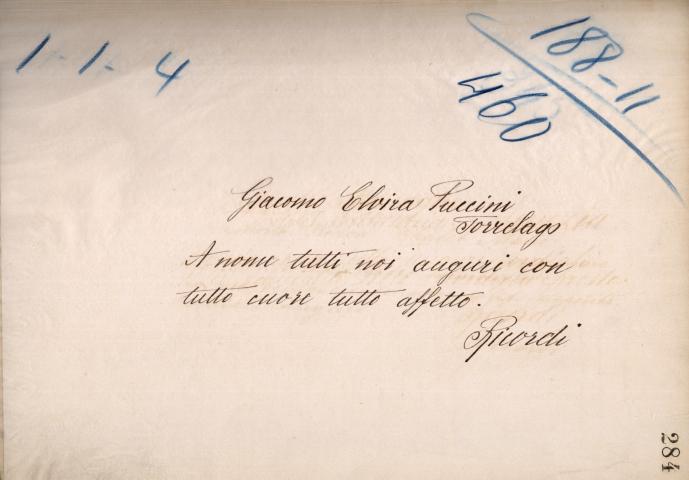 1-1-4
188-11
460
Giacomo Elvira Puccini
Torrelago
A nome tutti noi auguri con
tutto cuore tutto affetto.
Ricordi
284